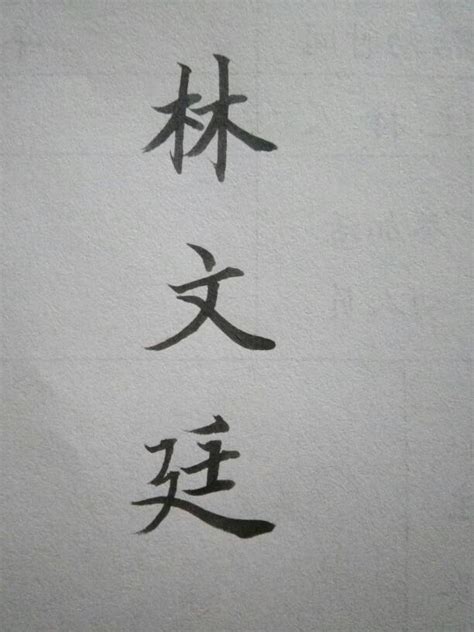 林文廷